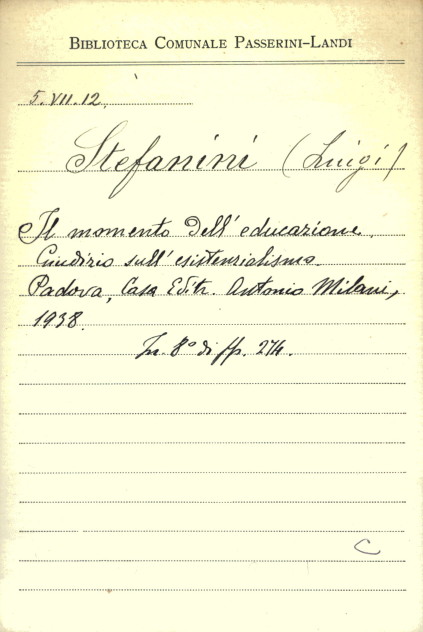 BIBLIOTECA COMUNALE PASSERINI-LANDI
5. VII. 12.
Stefanini (Luigi)
Il momento dell'educazione.
Giudizio sull'esistenzialismo.
Padova, Casa Editr. Antonio Milani,
1938.
In 8° di pp. 274.
C